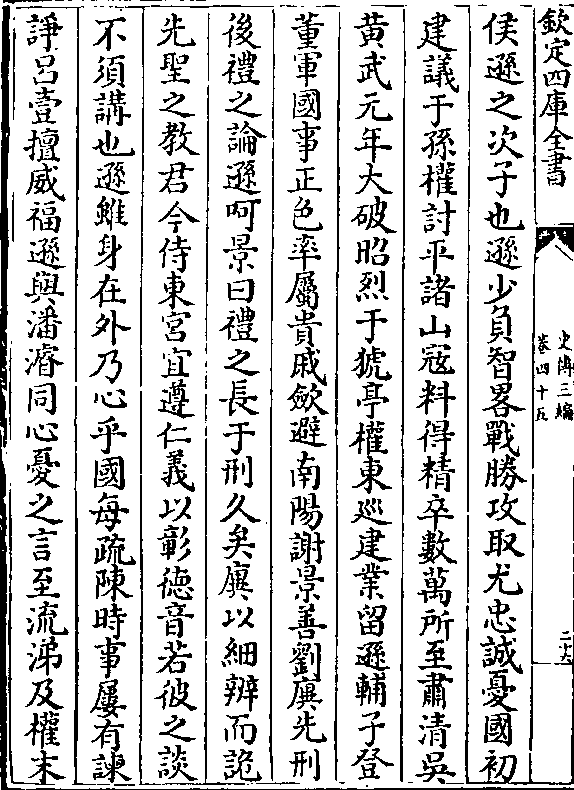 欽定四庫全書
史傳三編
卷四十五
二十六
侯遜之次子也遜少負智畧戰勝攻取尤忠誠憂國初
建議于孫權討平諸山寇料得精卒數萬所至肅清吳
黄武元年大破昭烈于猇亭權東巡建業留遜輔子登
董軍國事正色率屬貴戚歛避南陽謝景善劉廙先刑
後禮之論遜呵景曰禮之長于刑久矣廙以細辨而詭
先聖之教君今侍東宮宜遵仁義以彰徳音若彼之談
不須講也遜雖身在外乃心乎國每疏陳時事屢有諫
諍吕壹擅威福遜與潘濬同心憂之言至流涕及權末